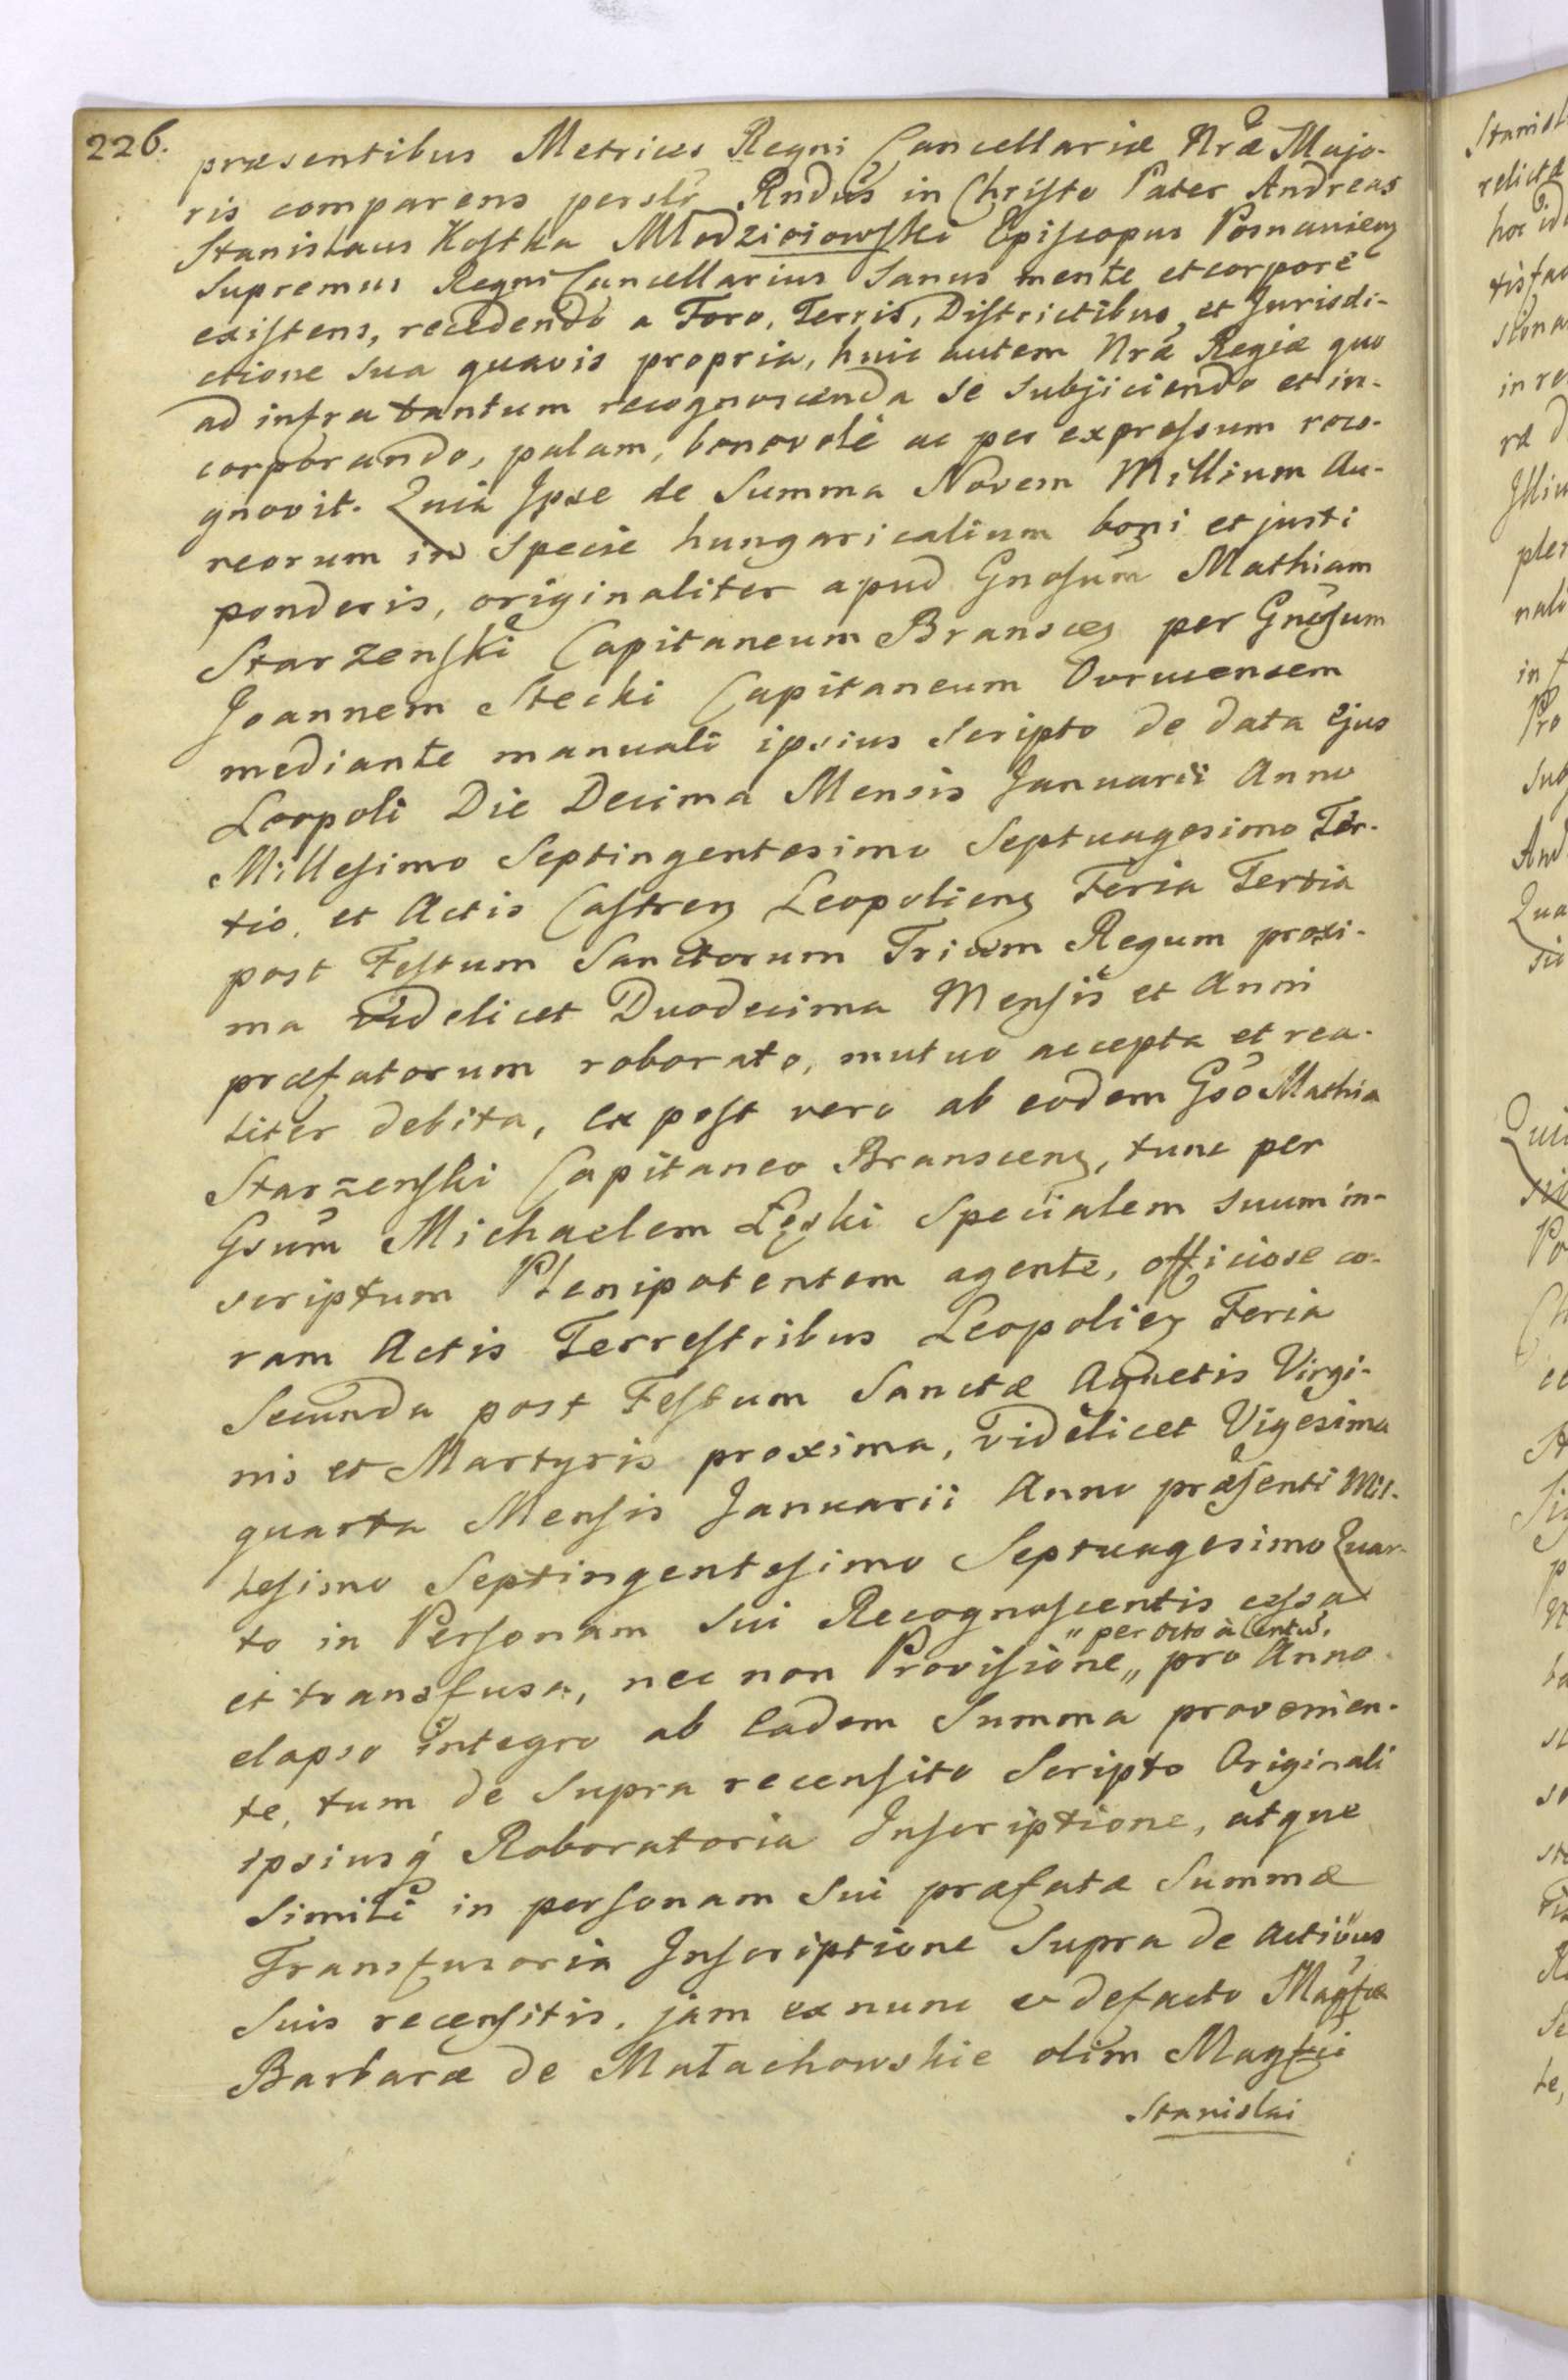 226.
præsentibus Metrices Regni Cancellariæ Nræ Majo-
ris comparens persltr Rndus in Christo Pater Andreas
Stanislaus Kostka Młodzieiowski Episcopus Posnaniens
Supremus Regni Cancellarius Sanus mente et corpore
existens, recedendo a Foro, Terris, Districtibus, et Jurisdi-
ctione sua quavis propria, huic autem Nræ Regiæ quo
ad infra tantum recognoscenda se subjiciendo et in-
corporando, palam, bonovole ac per expressum reco-
gnovit. Quia Ipse de Summa Novem Millium Au-
reorum in specie hungaricalium boni et justi
ponderis, originaliter apud Gnosum Mathiam
Starzenski Capitaneum Branscen per Gnosum
Joannem Stecki Capitaneum Ovrucensem
mediante manuali ipsius scripto de data ejus
Leopoli Die Decima Mensis Januarii Anno
Millesimo Septingentesimo Septuagesimo Ter-
tio, et Actis Castren Leopoliens Feria Tertia
post Festum Sanctorum Trium Regum proxi-
ma videlicet Duodecima Mensis et Anni
præfatorum roborato, mutuo accepta et rea-
liter debita, ex post vero ab eodem Gso Mathia
Starzenski Capitaneo Branscens, tunc per
Gsum Michaelem Łęski Specialem suum in-
scriptum Plenipotentem agente, officiose co-
ram Actis Terrestribus Leopolien Feria
Secunda post Festum Sanctæ Agnetis Virgi-
nis et Martyris proxima, videlicet Vigesima
quarta Mensis Januarii Anno præsenti Mil-
lesimo Septingentesimo Septuagesimo Quar-
to in Personam Sui Recognoscentis cessa
et transfusa, nec non Provisione „ pro Anno
„ per octo à Centũ,
elapso integro ab eadem Summa provenien-
te, tum de Supra recensito Scripto Originali
ipsiusq́ Roboratoria Inscriptione, atque
Simili in personam Sui præfatæ Summæ
Transfusoria Inscriptione Supra de Actibus
Suis recensitis, jam ex nunc et defacto Magfcæ
Barbaræ de Małachowskie olim Magfci
Stanislai